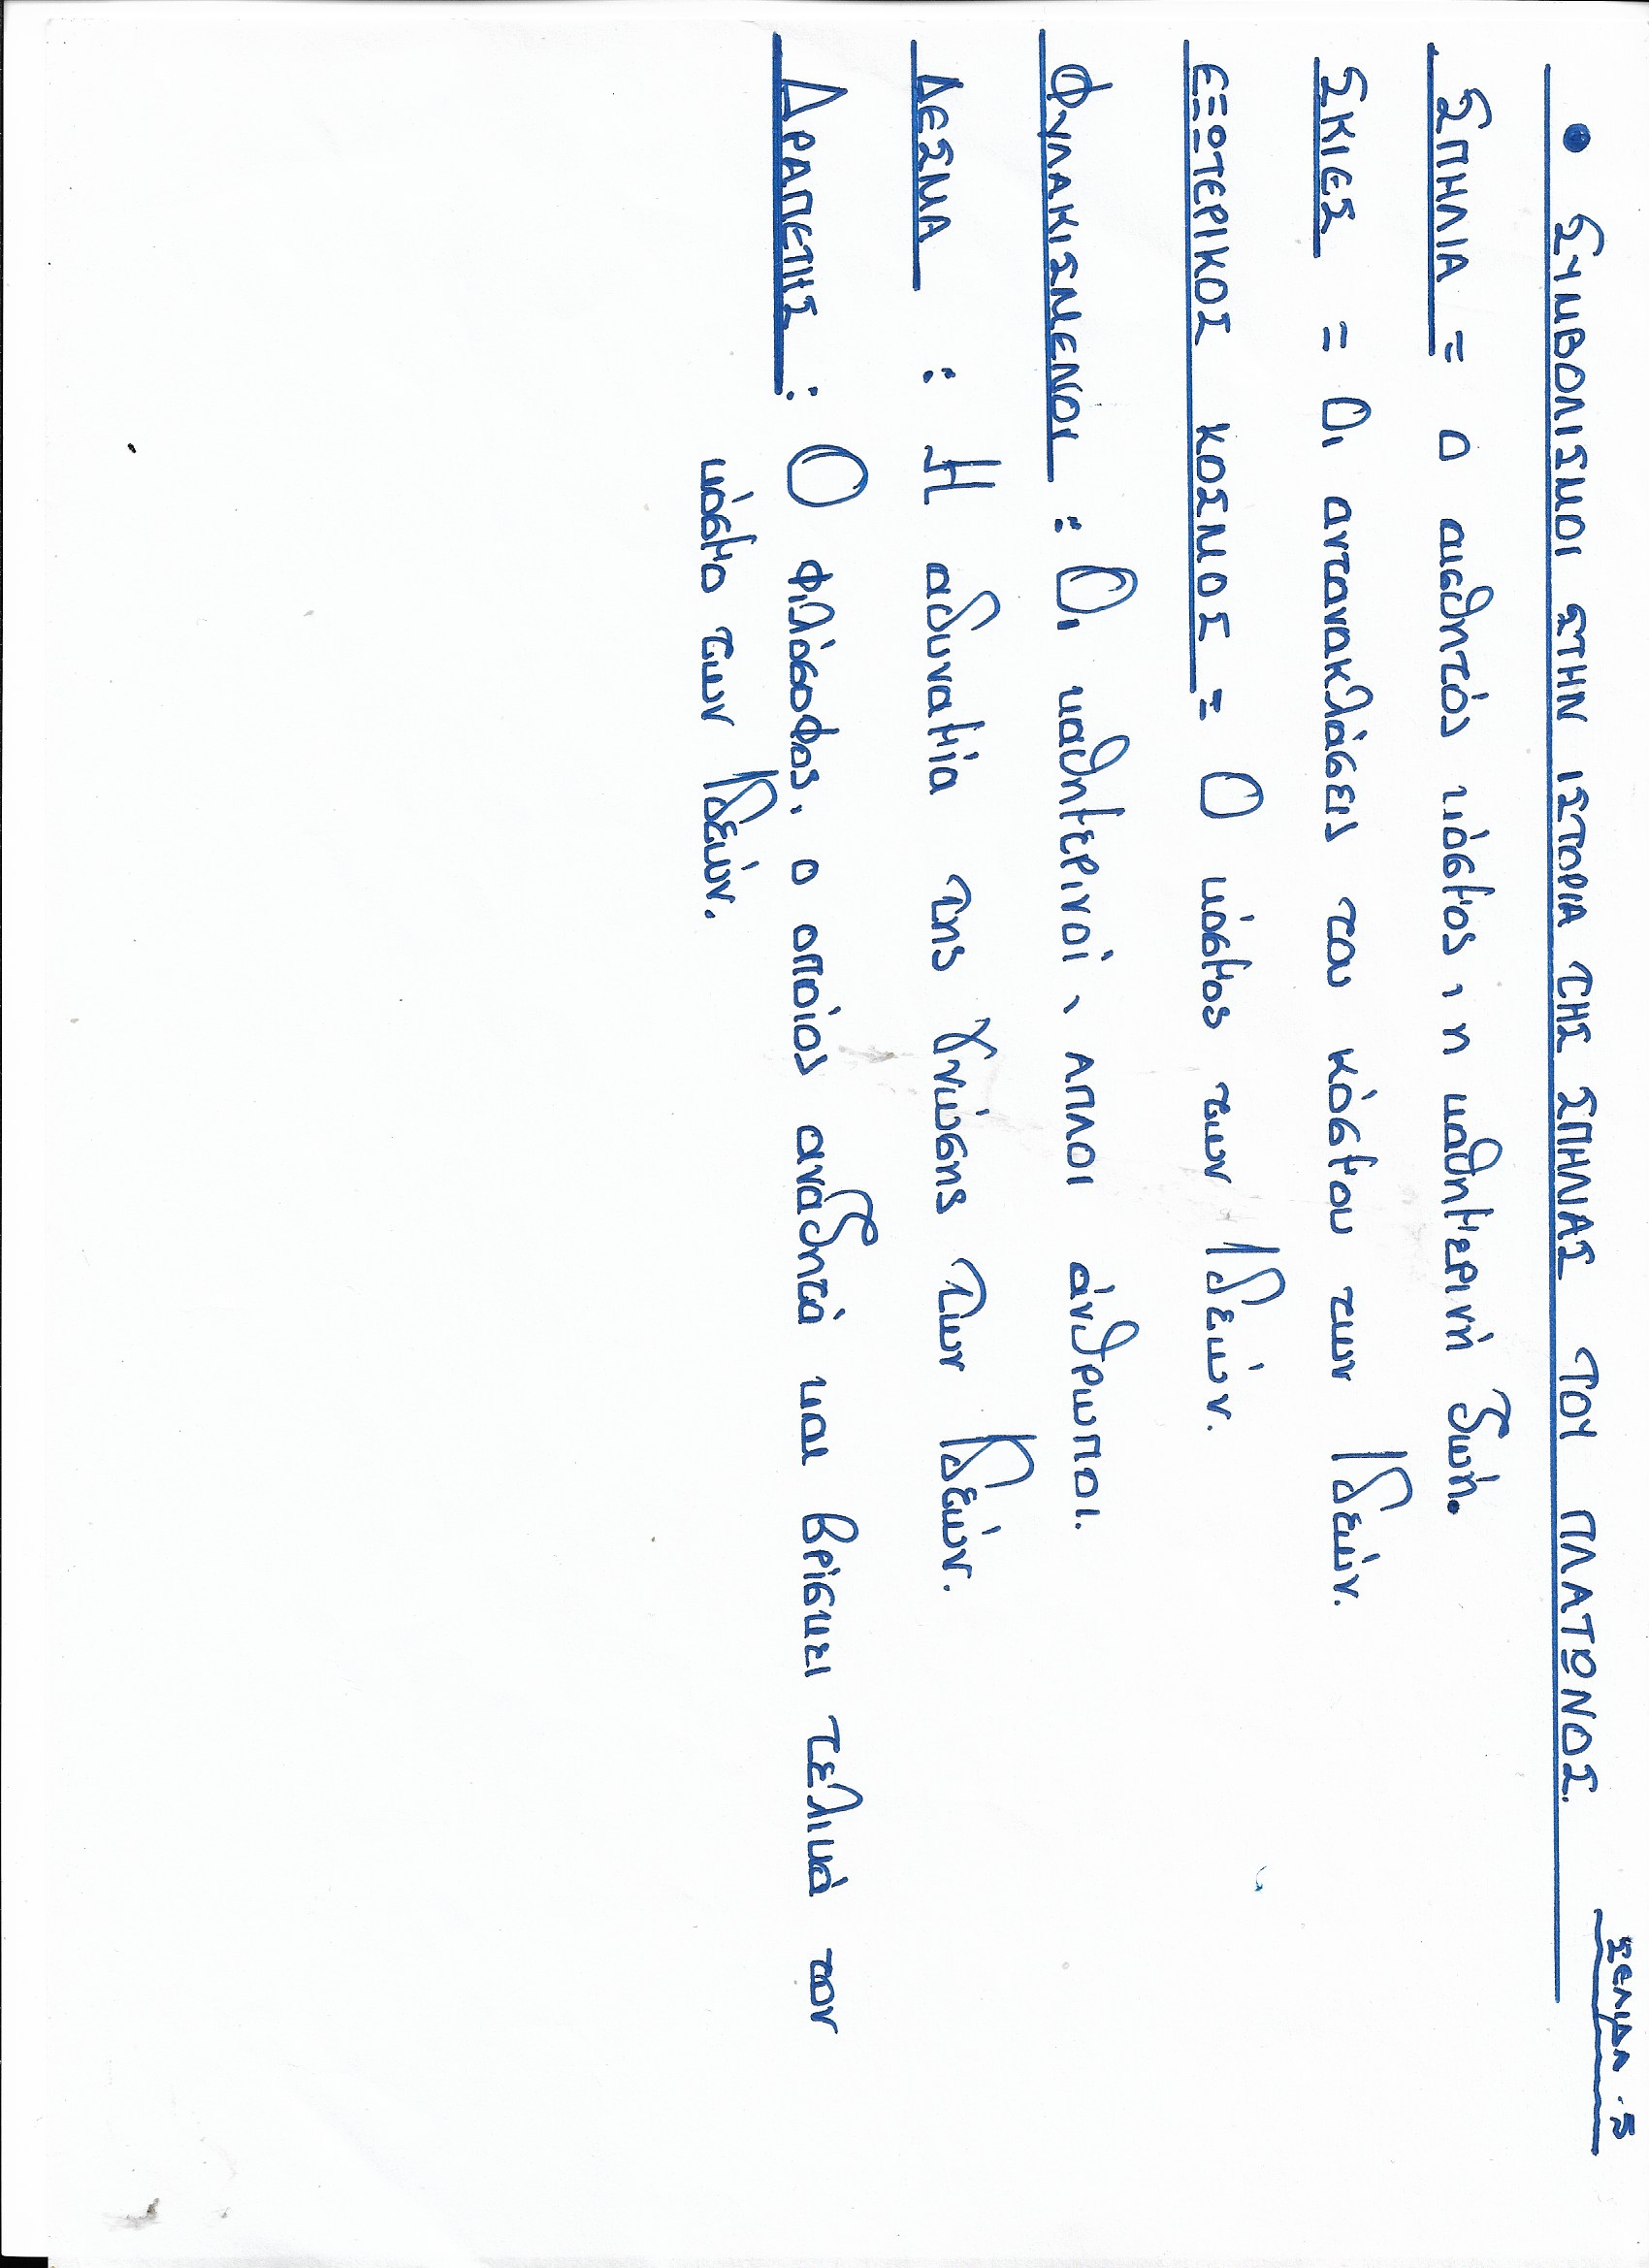 ΣΕΛΙΔΑ .5
• ΣΥΜΒΟΛΙΣΜΟΙ ΣΤΗΝ ΙΣΤΟΡΙΑ ΤΗΣ ΣΠΗΛΙΑΣ ΤΟΥ ΠΛΑΤΩΝΟΣ.
ΣΠΗΛΙΑ = Ο αισθητός κόσμος, η καθημερινή ζωή.
ΣΚΙΕΣ = Οι αντανακλάσεις του κόσμου των Ιδεών.
ΕΞΩΤΕΡΙΚΟΣ ΚΟΣΜΟΣ = Ο κόσμος των Ιδεών.
ΦΥΛΑΚΙΣΜΕΝΟΙ : Οι καθημερινοί, ΑΠΛΟΙ άνθρωποι.
ΔΕΣΜΑ : Η αδυναμία της γνώσης των Ιδεών.
ΔΡΑΠΕΤΗΣ : Ο φιλόσοφος, ο οποίος αναζητά και βρίσκει τελικά τον
κόσμο των Ιδεών.